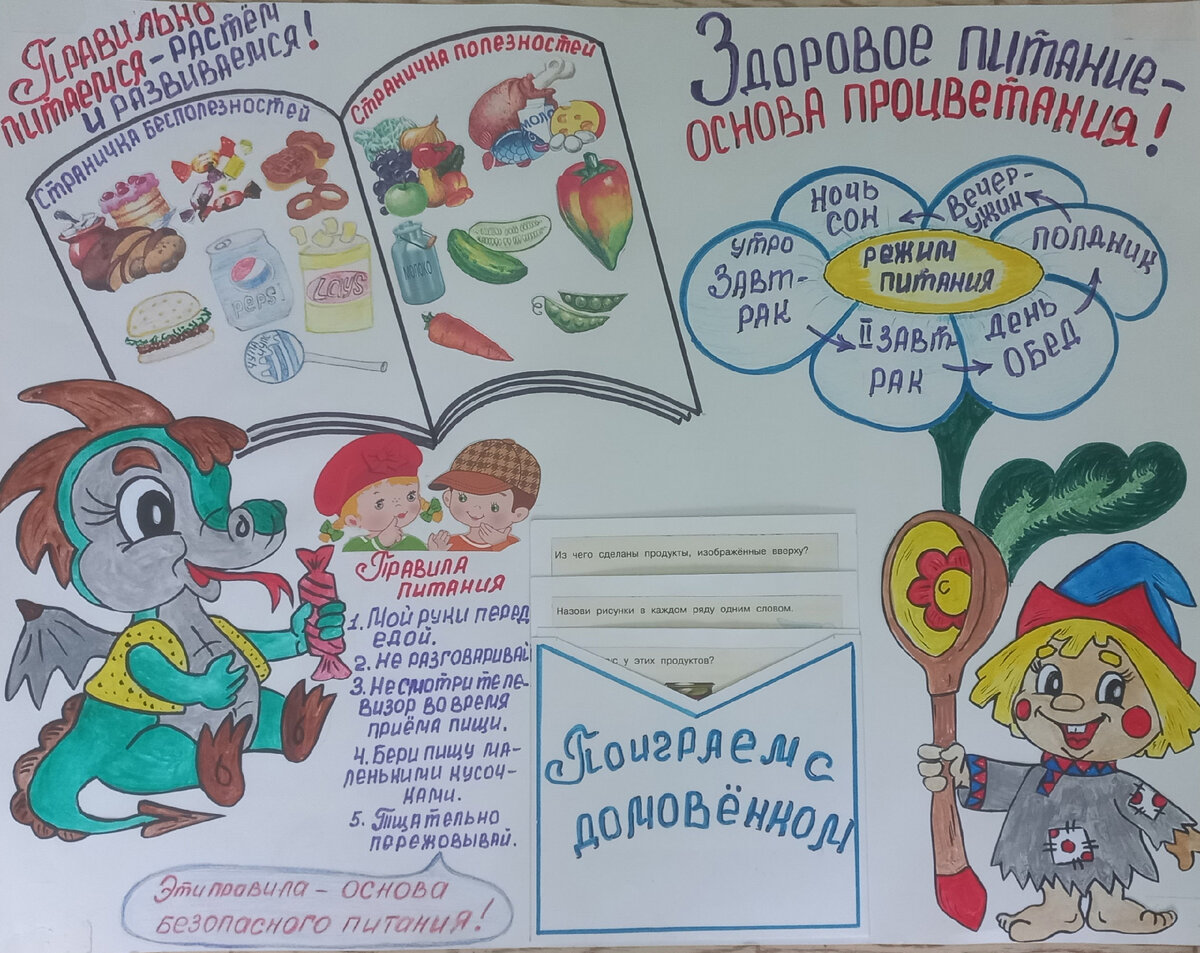 Правильно
питаемся - растём
и развиваемся!
Страничка бесполезностей
pepsi
Lays
чупа
чупс
Страничка полезностей
МОЛО
МОЛОКО
Здоровое питание -
основа процветания!
Режим
питания
утро
завт-
рак
II завт-
рак
день
обед
полдник
вечер-
ужин
ночь
сон
Правила
питания
1. Мой руки перед
едой.
2. Не разговаривай
3. Не смотри теле-
визор во время
приёма пищи.
4. Бери пищу ма-
ленькими кусоч-
ками.
5. Тщательно
пережовывай.
Эти правила - основа
безопасного питания!
Из чего сделаны продукты, изображённые вверху?
Назови рисунки в каждом ряду одним словом.
у этих продуктов?
Поиграем с
домовёнком
С